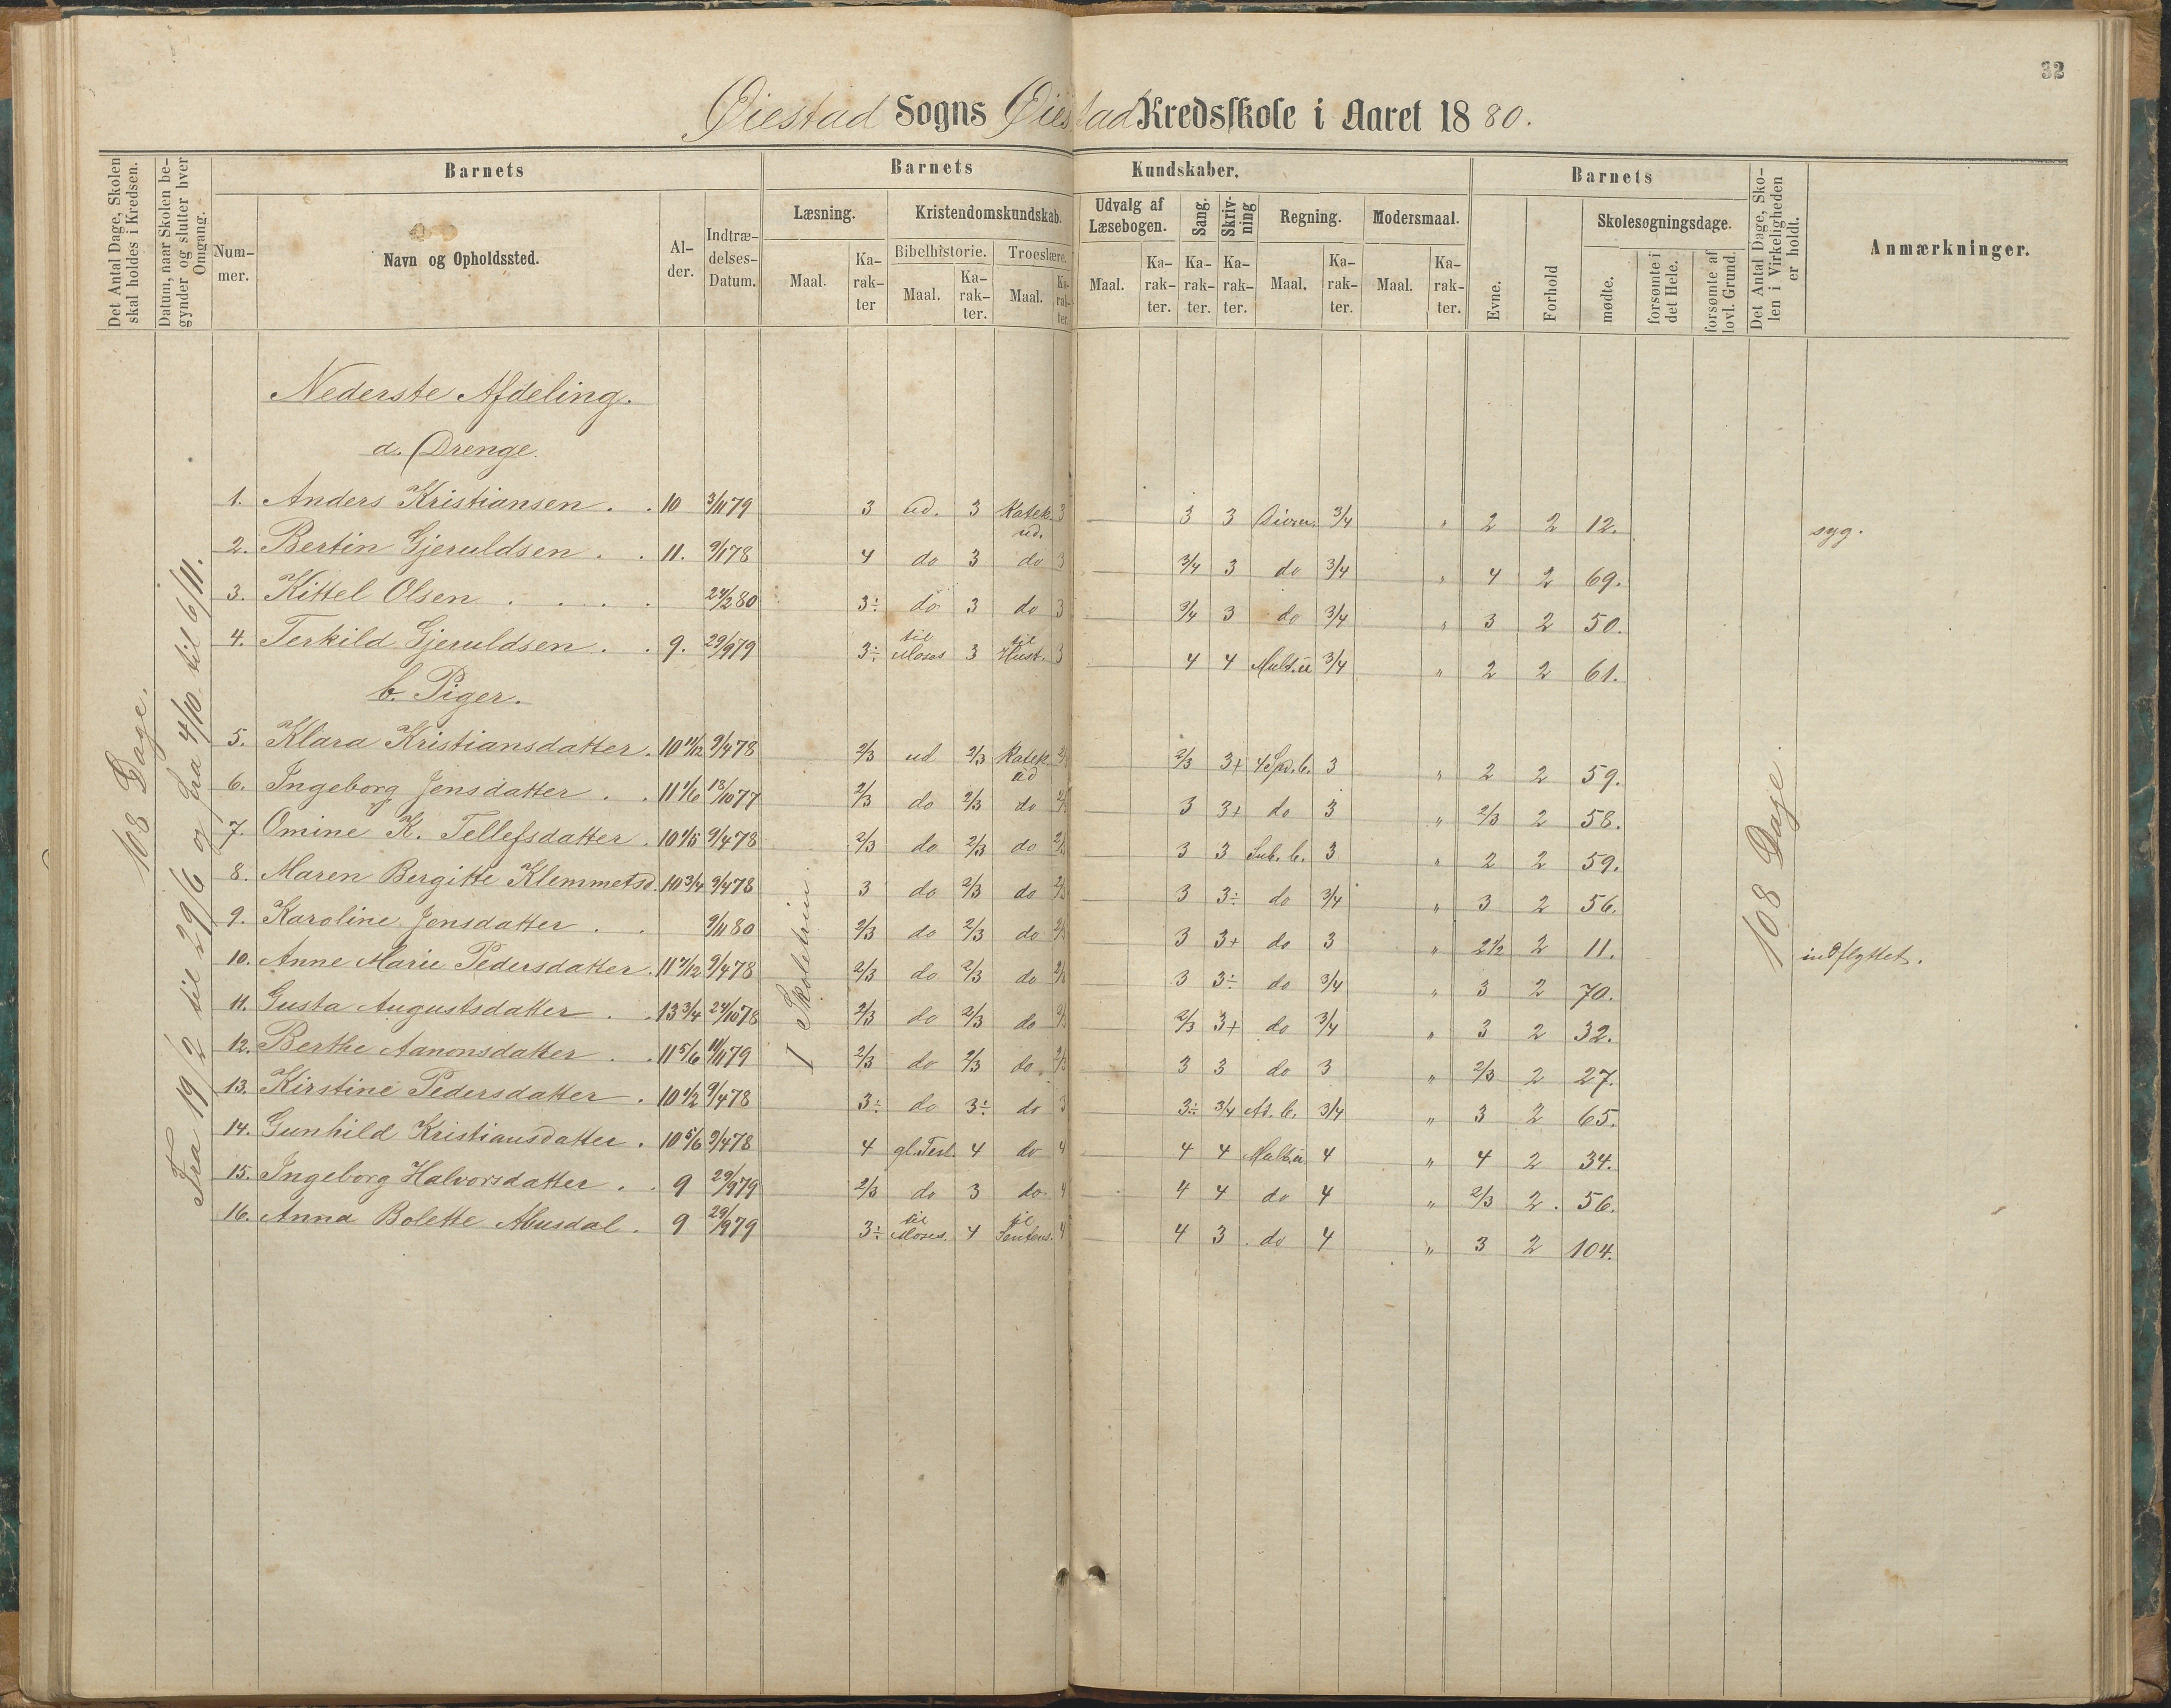 32
Øiestad Sogns Øiestad Kredsskole i Aaret 1880.
Det Antal Dage, Skolen skal holdes i Kredsen.
Datum, naar Skolen begynder og slutter hver Omgang.
Barnets
Nummer.
Navn og Opholdssted.
Alder.
Indtrædelses-Datum.
Barnets Kundskaber.
Læsning.
Maal.
Karakter
Kristendomskundskab.
Bibelhistorie.
Maal.
Karakter.
Troeslære.
Maal.
Karakter.
Udvalg af Læsebogen.
Maal.
Karakter.
Sang.
Karakter.
Skrivning
Karakter.
Regning.
Maal.
Karakter.
Modersmaal.
Maal.
Karakter.
Barnets
Evne.
Forhold
Skolesøgningsdage.
mødte.
forsømte i det Hele.
forsømte af lovl. Grund.
Det Antal Dage, Skolen i Virkeligheden er holdt.
Anmærkninger.
108 Dage.
Fra 19/2 til 29/6 og fra 4/10 til 6/11.
I Skoletrin.
108 Dage.
Nederste Afdeling.
a. Drenge.
1. Anders Kristiansen . . 10 3/11 79 3 ud. 3 Katek. ud. 3 3 3 3/4 " 2 2 12. syg.
2. Bertin Gjeruldsen . . 11. 9/1 78 4 do 3 do 3 3/4 3 do 3/4 " 4 2 69.
3. Kittel Olsen . . . . 24/2 80 3÷ do 3 do 3 3/4 3 do 3/4 " 3 2 50.
4. Terkild Gjeruldsen . . 9. 29/9 79 3÷ til Moses 3 til 3 4 4 3/4 " 2 2 61.
b. Piger.
5. Klara Kristiansdatter . 10 11/12 9/4 78 2/3 ud 2/3 Katek. ud 2/3 3+ 3 " 2 2 59.
6. Ingeborg Jensdatter . . 11 1/6 18/10 77 2/3 do 2/3 do 3 3+ do 3 " 2/3 2 58.
7. Omine K. Tellefsdatter . 10 1/5 9/4 78 2/3 do 2/3 do 3 3 Sub. b. 3 " 2 2 59.
8. Maren Bergitte Klemmetsd. 10 3/4 9/4 78 3 do 2/3 do 3 3÷ do 3/4 " 3 2 56.
9. Karoline Jensdatter . . 9/11 80 2/3 do 2/3 do 3 3+ do 3 " 2 1/2 2 11. indflyttet.
10. Anne Marie Pedersdatter . 11 7/12 9/4 78 2/3 do 2/3 do 3 3÷ do 3/4 " 3 2 70.
11. Gusta Augustsdatter . . 13 3/4 24/10 78 2/3 do 2/3 do 2/3 3+ do 3/4 " 3 2 32.
12. Berthe Aanonsdatter . . 11 5/6 11/11 79 2/3 do 2/3 do. 3 3 do 3 " 2/3 2 27.
13. Kirstine Pedersdatter . 10 1/2 9/4 78 3÷ do 3÷ do 3 3÷ 3/4 Ad. b. 3/4 " 3 2 65.
14. Gunhild Kristiansdatter . 10 5/6 9/4 78 4 gl. Test. 4 do 4 4 4 4 " 4 2 34.
15. Ingeborg Halvorsdatter . . 9 29/9 79 2/3 do 3 do. 4 4 4 do 4 " 2/3 2 . 56.
16. Anna Bolette Abusdal . 9 29/9 79 3÷ til Moses. 4 til 4 4 3 do 4 " 3 2 104.